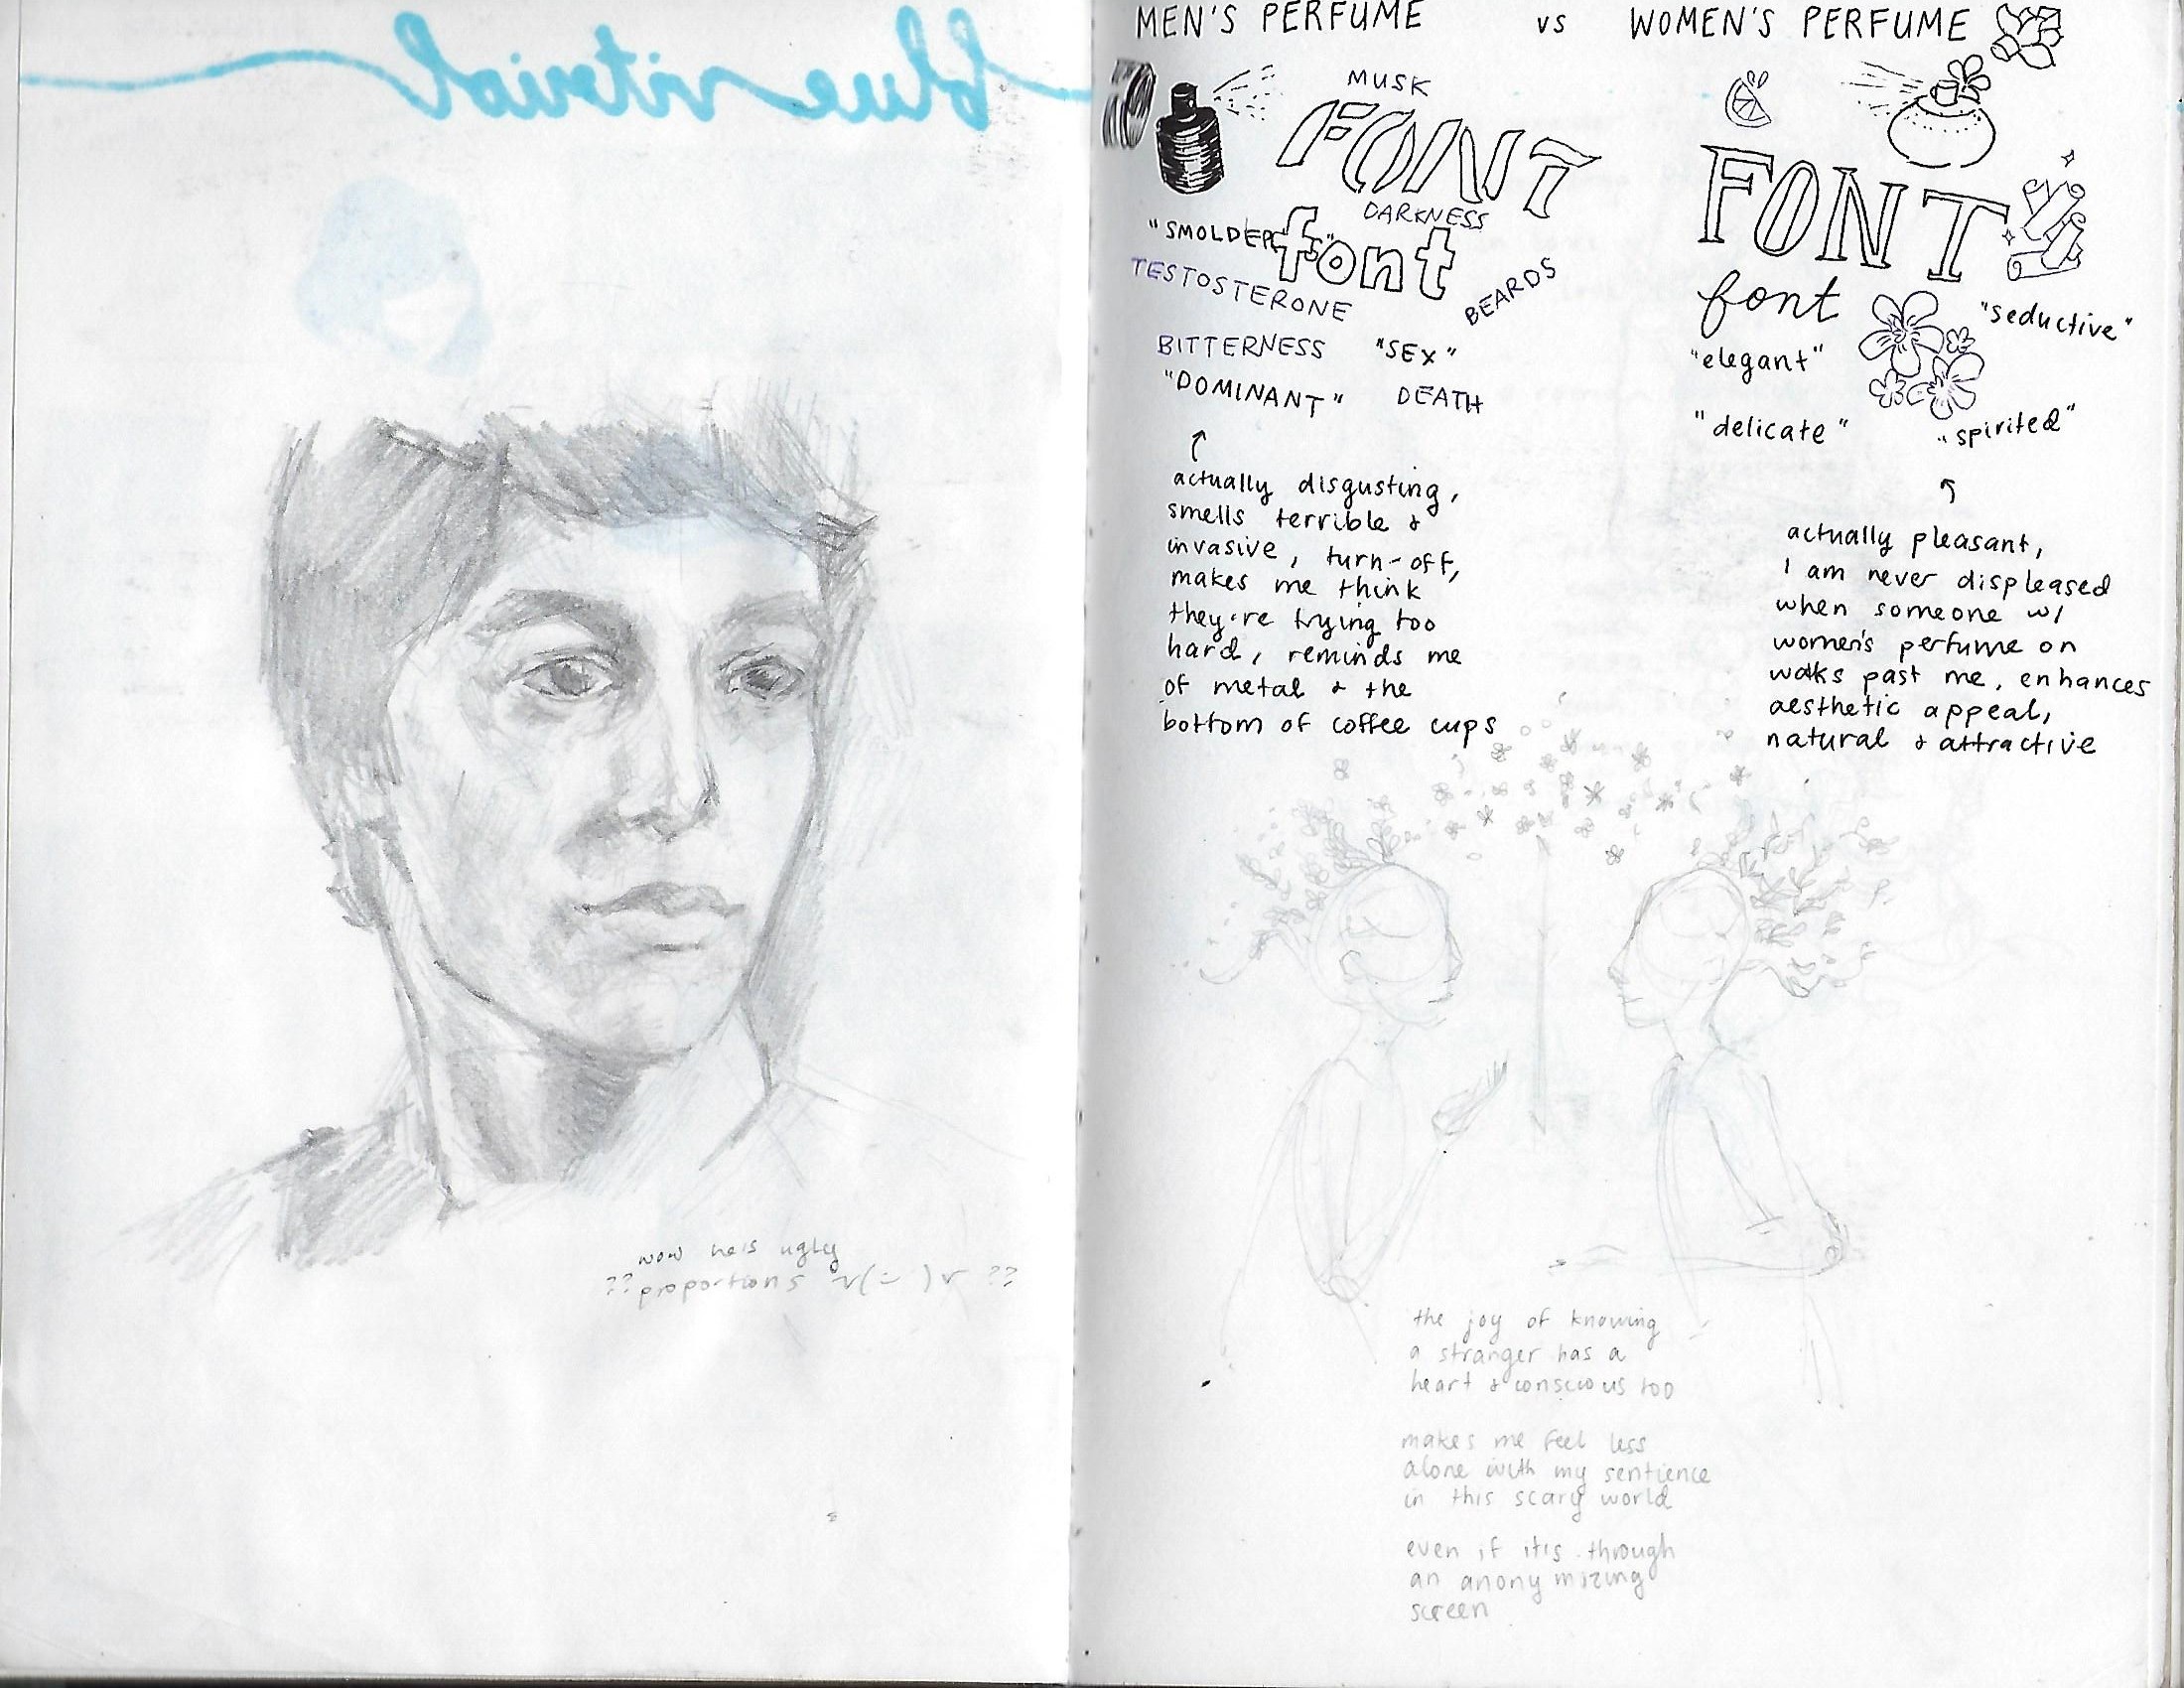 blue vitriol
now he is ugly
?? proportions ??
MEN'S PERFUME vs WOMEN'S PERFUME
MUSK
FONT
DARKNESS
font
TESTOSTERONE
BEARDS
BITTERNESS "SEX"
"DOMINANT" DEATH
actually disgusting,
smells terrible &
invasive, turn-off,
makes me think
they're trying too
hard, reminds me
of metal & the
bottom of coffee cups
FONT
font
"seductive"
"elegant"
"delicate" "spirited"
actually pleasant,
I am never displeased
when someone w/
women's perfume on
walks past me, enhances
aesthetic appeal,
natural & attractive
the joy of knowing
a stranger has a
heart & conscious too
makes me feel less
alone with my sentience
in this scary world
even if it's through
an anonymizing
screen